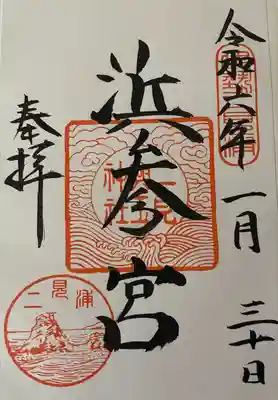 令和六年 一月 三十日
浜参宮
二見
興玉
神社
奉拝
二見浦